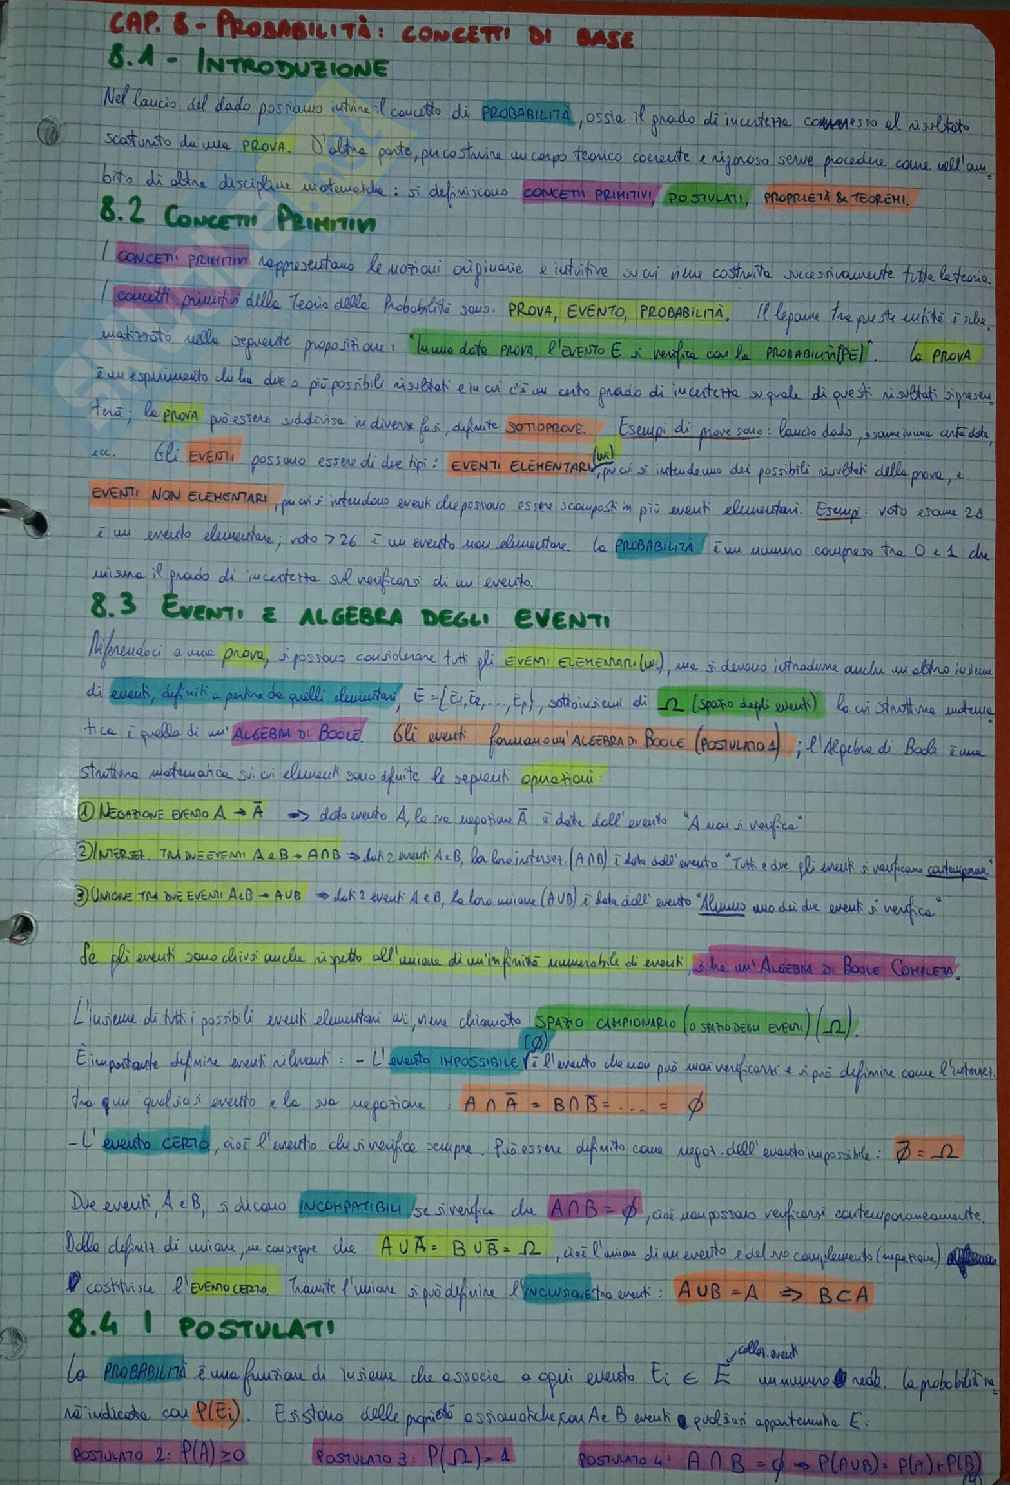 CAP. 8 - PROBABILITÀ: CONCETTI DI BASE
8.1 - INTRODUZIONE
Nel lancio del dado possiamo intuire il concetto di PROBABILITÀ, ossia il grado di incertezza connesso al risultato
scaturito da una PROVA. D'altra parte, per costruire un corpo teorico coerente e rigoroso serve procedere come nell'am-
bito di altre discipline matematiche: si definiscono CONCETTI PRIMITIVI, POSTULATI, PROPRIETÀ & TEOREMI.
8.2 CONCETTI PRIMITIVI
I CONCETTI PRIMITIVI rappresentano le nozioni originarie e intuitive su cui viene costruita successivamente tutta la teoria.
I concetti primitivi della Teoria della Probabilità sono: PROVA, EVENTO, PROBABILITÀ. Il legame tra queste entità è sche-
matizzato nella seguente proposizione: "In una data PROVA, l'EVENTO E si verifica con la PROBABILITÀ P(E)". La PROVA
è un esperimento che ha due o più possibili risultati e in cui c'è un certo grado di incertezza su quale di questi risultati si presen-
terà; la PROVA può essere suddivisa in diverse fasi, definite SOTTOPROVE. Esempi di prove sono: lancio dado, esame in una certa data,
ecc. Gli EVENTI possono essere di due tipi: EVENTI ELEMENTARI (wi), per cui si intendono dei possibili risultati della prova, e
EVENTI NON ELEMENTARI, per cui si intendono eventi che possono essere scomposti in più eventi elementari. Esempi: voto esame 28
è un evento elementare; voto > 26 è un evento non elementare. La PROBABILITÀ è un numero compreso tra 0 e 1 che
misura il grado di incertezza sul verificarsi di un evento.
8.3 EVENTI E ALGEBRA DEGLI EVENTI
Riferendoci a una prova, si possono considerare tutti gli EVENTI ELEMENTARI (wi), ma si devono introdurre anche un altro insieme
di eventi, definiti a partire da quelli elementari, E = {E1, E2, ..., Ep}, sottoinsiemi di Ω (spazio degli eventi) la cui struttura matema-
tica è quella di un'ALGEBRA DI BOOLE. Gli eventi formano un'ALGEBRA DI BOOLE (POSTULATO 1); l'Algebra di Boole è una
struttura matematica su cui elementi sono definite le seguenti operazioni:
① NEGAZIONE EVENTO A → Ā ⇒ dato evento A, la sua negazione Ā è data dall'evento "A non si verifica"
② INTERSEZ. TRA DUE EVENTI A e B → A∩B ⇒ dati 2 eventi A e B, la loro intersez. (A∩B) è data dall'evento "Tutti e due gli eventi si verificano contemporan."
③ UNIONE TRA DUE EVENTI A e B → A∪B ⇒ dati 2 eventi A e B, la loro unione (A∪B) è data dall'evento "Almeno uno dei due eventi si verifica"
Se gli eventi sono chiusi anche rispetto all'unione di un'infinità numerabile di eventi, si ha un'ALGEBRA DI BOOLE COMPLETA.
L'insieme di tutti i possibili eventi elementari wi, viene chiamato SPAZIO CAMPIONARIO (O SPAZIO DEGLI EVENTI) (Ω).
È importante definire eventi rilevanti: - L'evento IMPOSSIBILE (∅) è l'evento che non può mai verificarsi e si può definire come l'intersez.
tra un qualsiasi evento e la sua negazione: A ∩ Ā = B ∩ B̄ = .... = ∅
- L'evento CERTO, cioè l'evento che si verifica sempre. Può essere definito come negaz. dell'evento impossibile: ∅̄ = Ω
Due eventi, A e B, si dicono INCOMPATIBILI se si verifica che A∩B = ∅, cioè non possono verificarsi contemporaneamente.
Dalla definiz. di unione, ne consegue che A∪Ā = B∪B̄ = Ω, cioè l'unione di un evento e del suo complemento (negazione)
costituisce l'EVENTO CERTO. Tramite l'unione si può definire l'INCLUSIONE tra eventi: A∪B = A ⇒ B⊂A
8.4 I POSTULATI
La PROBABILITÀ è una funzione di insieme che associa a ogni evento Ei ∈ E collez. eventi un numero reale. La probabilità ver-
rà indicata con P(Ei). Esistono delle proprietà assiomatiche, con A e B eventi qualsiasi appartenenti a E:
POSTULATO 2: P(A) ≥ 0 POSTULATO 3: P(Ω) = 1 POSTULATO 4: A ∩ B = ∅ ⇒ P(A∪B) = P(A) + P(B)